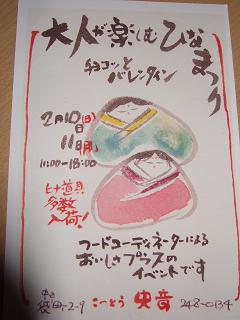 大人が楽しむひなまつり
チョコッとバレンタイン
2月10日(日)
11日(月)
11:00-18:00
ヒナ道具
多数
入荷!
フードコーディネーターによる
おいしさプラスの
イベントです
こっとう 央音 248-0134